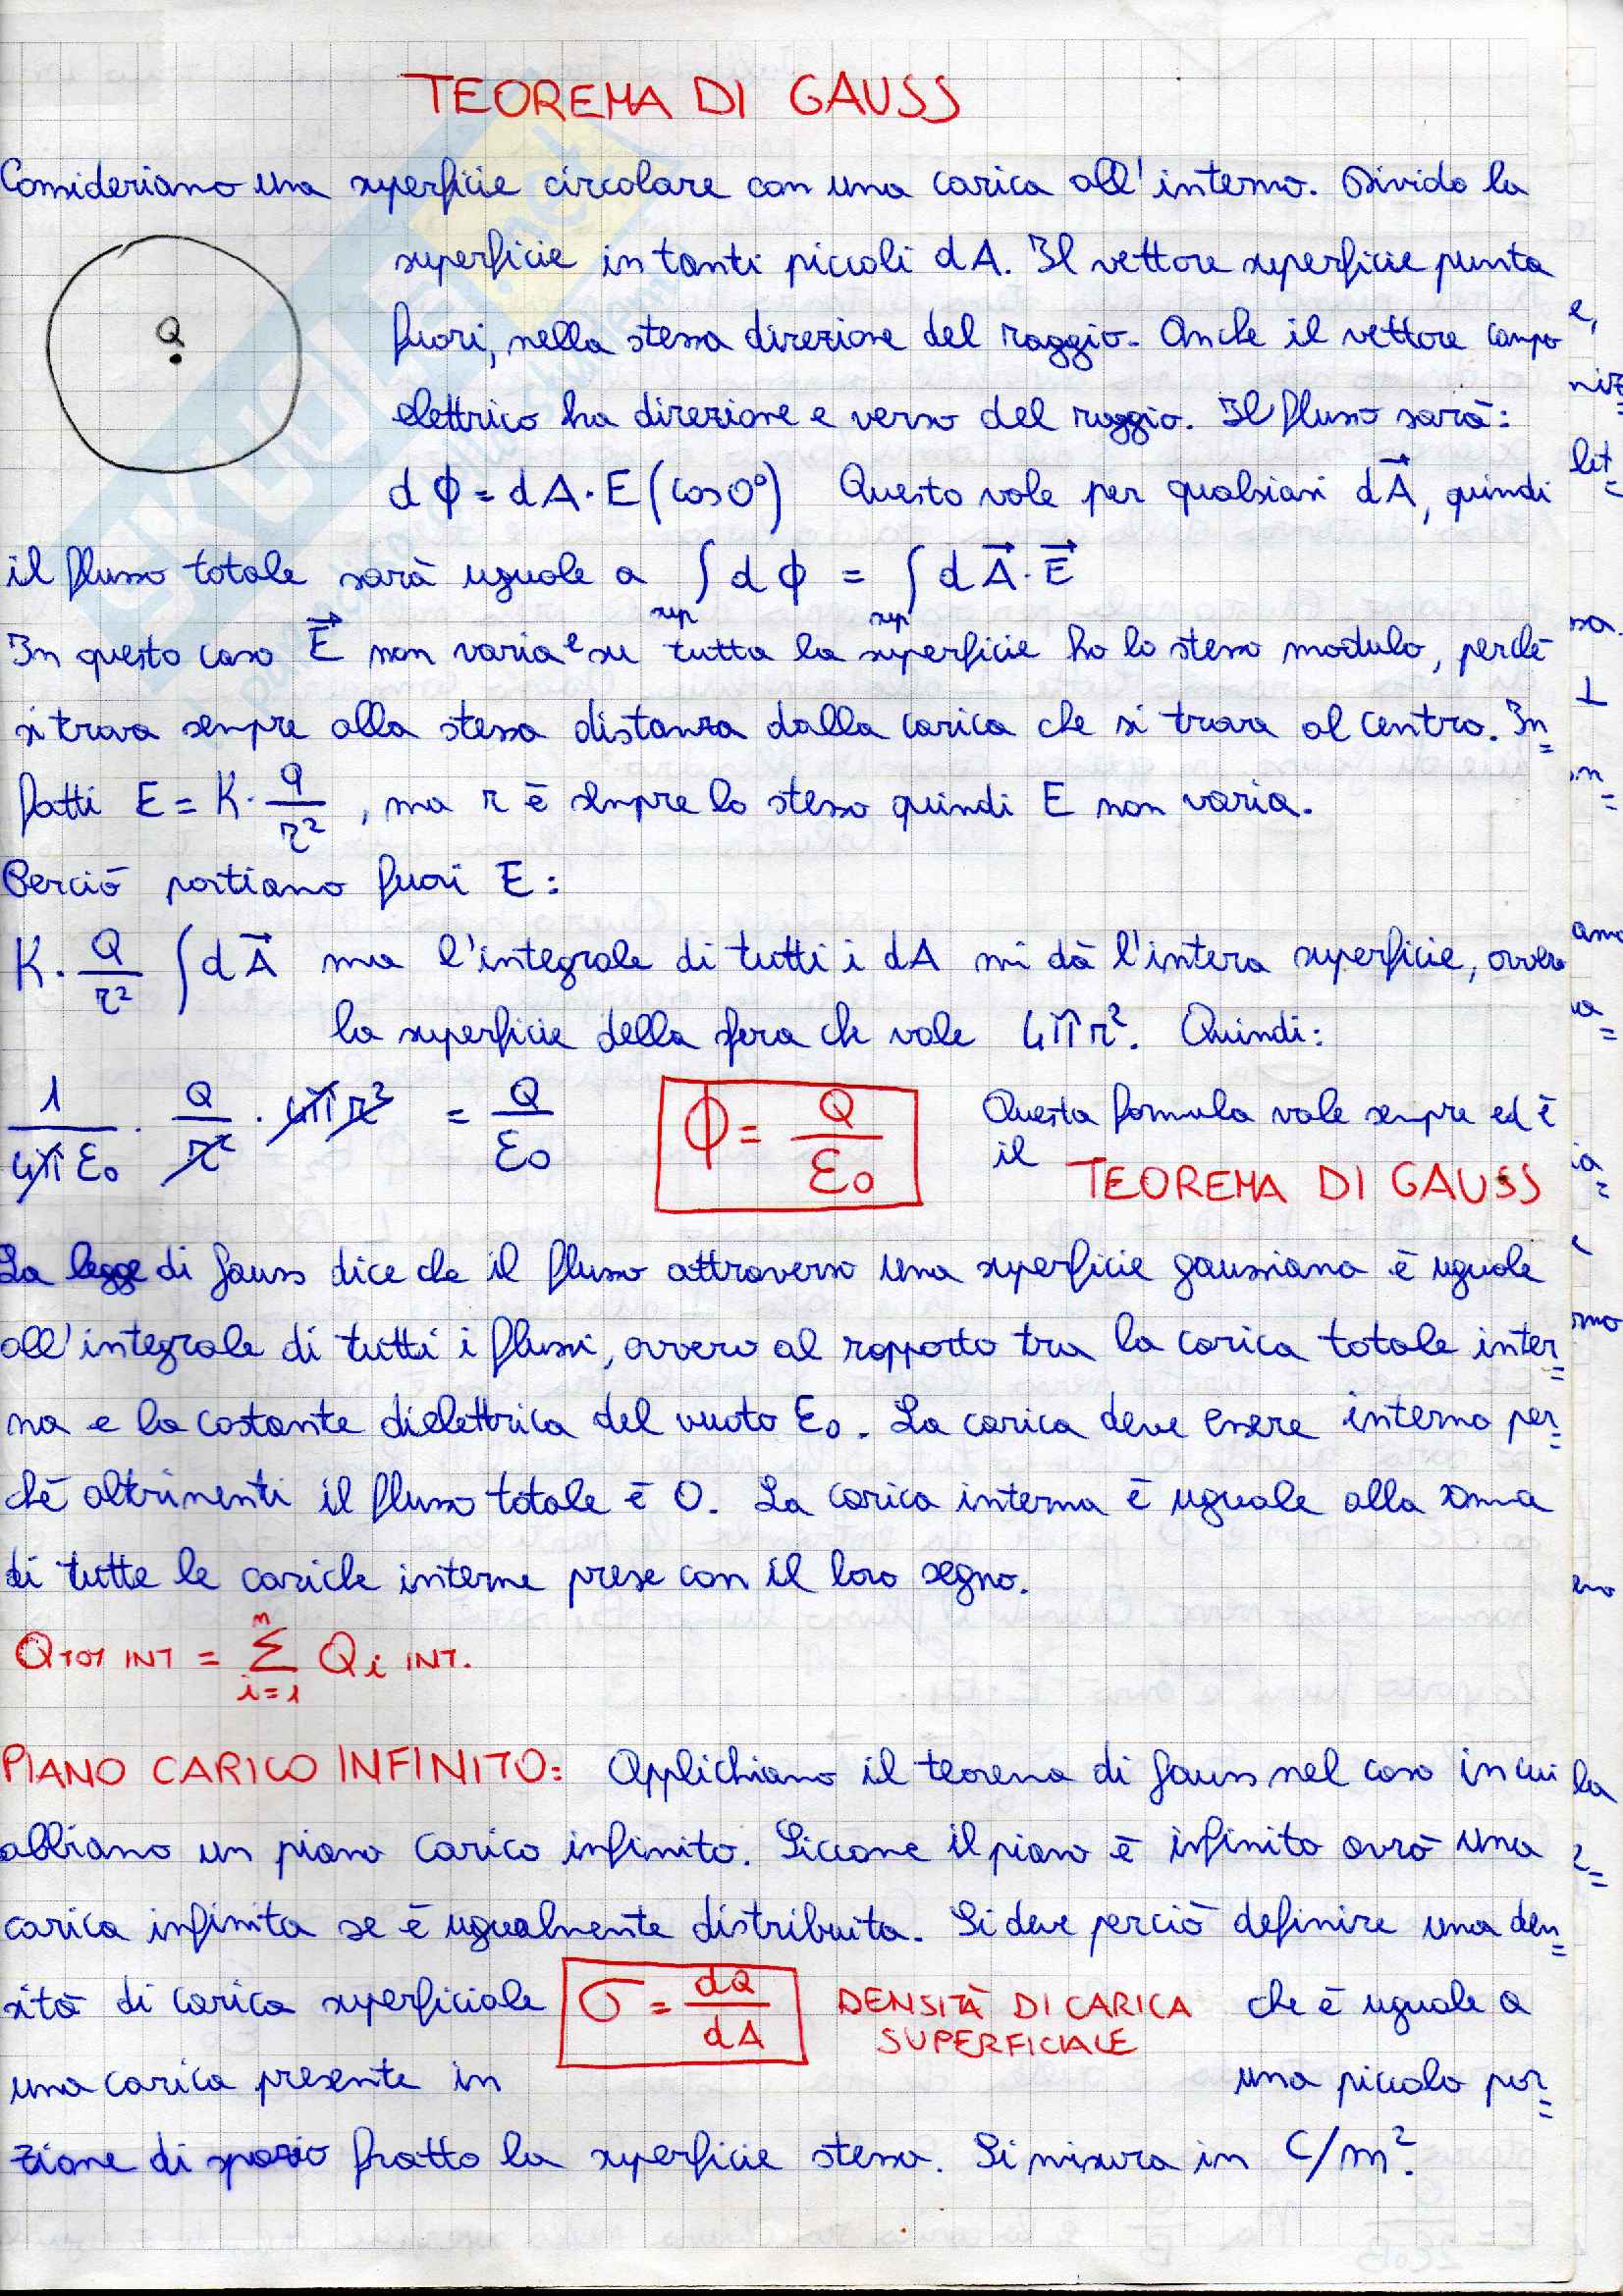 TEOREMA DI GAUSS
Consideriamo una superficie circolare con una carica all'interno. Divido la
superficie in tanti piccoli dA. Il vettore superficie punta
Q
fuori, nella stessa direzione del raggio. Anche il vettore campo
elettrico ha direzione e verso del raggio. Il flusso sarà:
dϕ = dA·E (cos0°) Questo vale per qualsiasi dA⃗, quindi
il flusso totale sarà uguale a ∫sup dϕ = ∫sup dA⃗·E⃗
In questo caso E⃗ non varia e su tutta la superficie ho lo stesso modulo, perché
si trova sempre alla stessa distanza dalla carica che si trova al centro. In=
fatti E = K· q/r², ma r è sempre lo stesso quindi E non varia.
Perciò portiamo fuori E:
K· Q/r² ∫dA⃗ ma l'integrale di tutti i dA mi dà l'intera superficie, ovvero
la superficie della sfera che vale 4πr². Quindi:
1/4πε₀ · Q/r² · 4πr² = Q/ε₀ ϕ = Q/ε₀ Questa formula vale sempre ed è
il TEOREMA DI GAUSS
La legge di Gauss dice che il flusso attraverso una superficie gaussiana è uguale
all'integrale di tutti i flussi, ovvero al rapporto tra la carica totale inter=
na e la costante dielettrica del vuoto ε₀. La carica deve essere interna per=
ché altrimenti il flusso totale è 0. La carica interna è uguale alla somma
di tutte le cariche interne prese con il loro segno.
QTOT INT = Σ i=1 n Qi INT.
PIANO CARICO INFINITO: Applichiamo il teorema di Gauss nel caso in cui
abbiamo un piano carico infinito. Siccome il piano è infinito avrò una
carica infinita se è ugualmente distribuita. Si deve perciò definire una den=
sità di carica superficiale σ = dQ/dA DENSITÀ DI CARICA che è uguale a
SUPERFICIALE
una carica presente in una piccola por=
zione di spazio fratto la superficie stessa. Si misura in C/m².